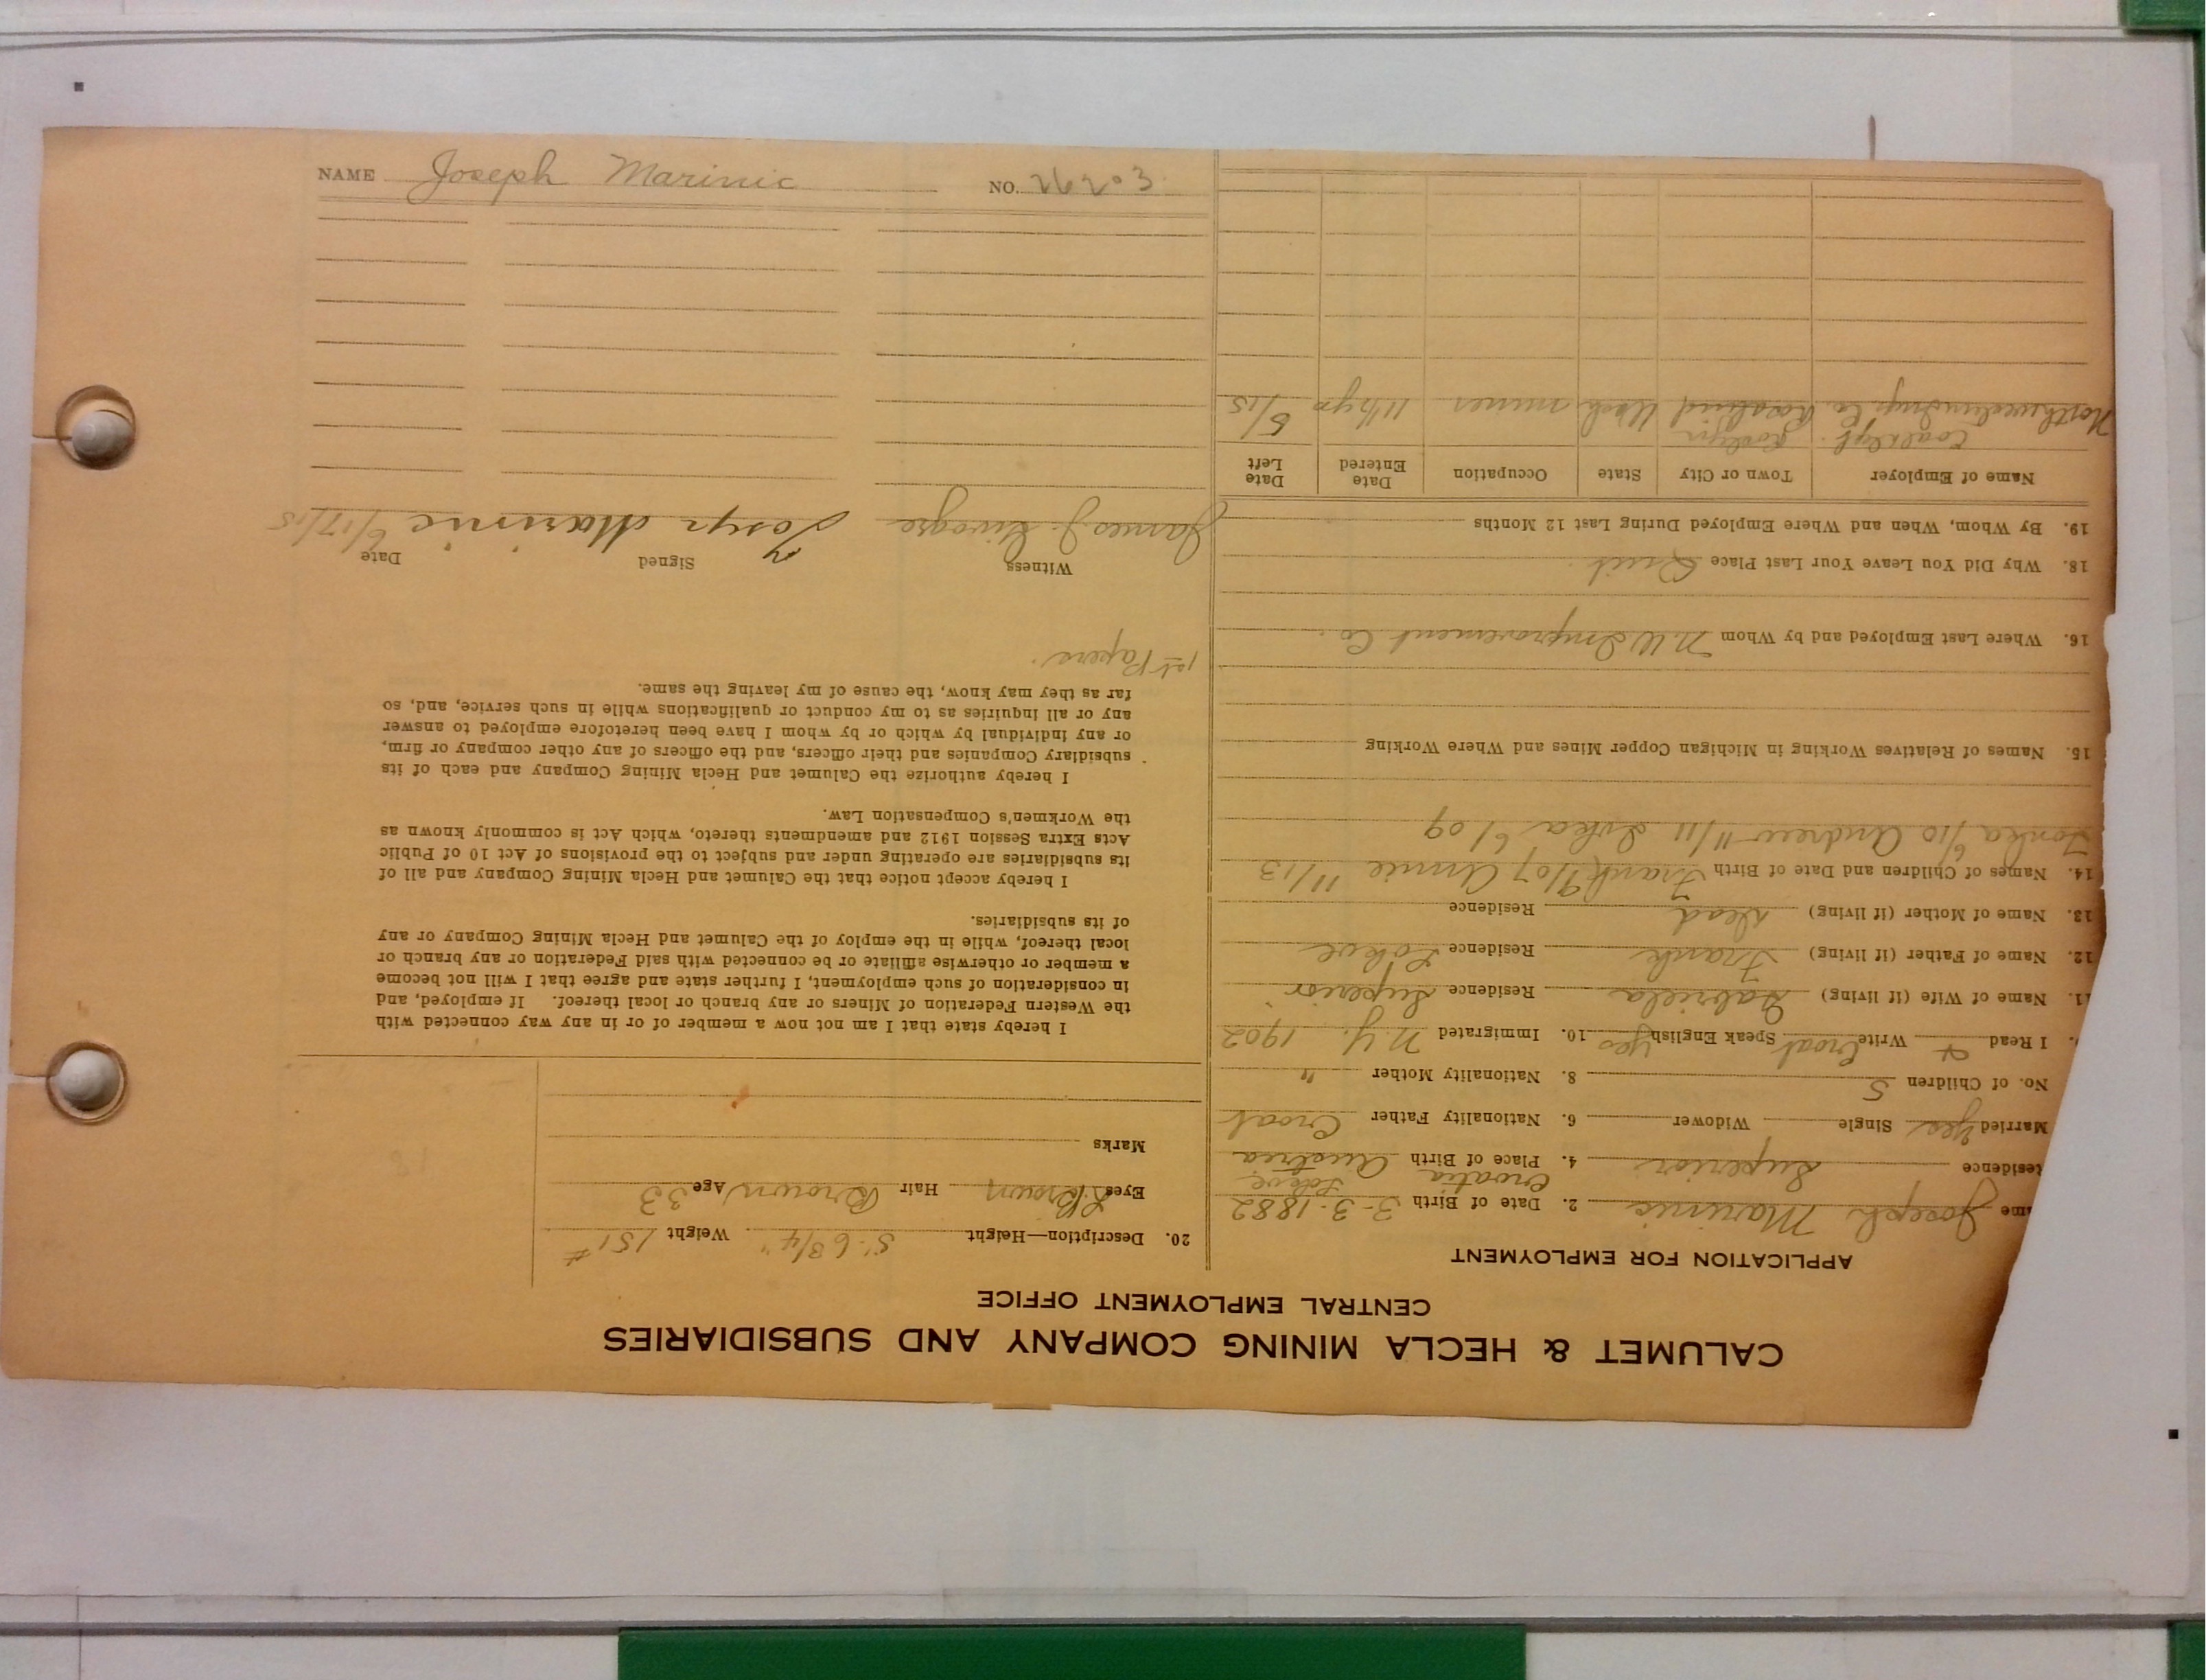 CALUMET & HECLA MINING COMPANY AND SUBSIDIARIES
CENTRAL EMPLOYMENT OFFICE
APPLICATION FOR EMPLOYMENT
ame Joseph Marinic 2. Date of Birth 3-3-1882
Lokve
Croatia
esidence Superior 4. Place of Birth Austria
Married Yes Single Widower 6. Nationality Father Croat
No. of Children 5 8. Nationality Mother "
I Read & Write Croat Speak English yes 10. Immigrated N.Y. 1902
11. Name of Wife (if living) Gabriela Residence Superior
12. Name of Father (if living) Frank Residence Lokve
13. Name of Mother (if living) Dead Residence
14. Names of Children and Date of Birth Frank 9/07 Annie 11/13
Tonka 6/10 Andrew 11/11 Ivka 6/09
15. Names of Relatives Working in Michigan Copper Mines and Where Working
16. Where Last Employed and by Whom N.W. Improvement Co.
18. Why Did You Leave Your Last Place Quit
19. By Whom, When and Where Employed During Last 12 Months
Name of Employer Town or City State Occupation Date Entered Date Left
Coal Dept. Roslyn
Northwestern Imp. Co. Wash miner 11/2 yr 5/15
20. Description—Height 5' 6 3/4" Weight 151 #
Eyes Brown Hair Brown Age 33
Marks
I hereby state that I am not now a member of or in any way connected with
the Western Federation of Miners or any branch or local thereof. If employed, and
in consideration of such employment, I further state and agree that I will not become
a member or otherwise affiliate or be connected with said Federation or any branch or
local thereof, while in the employ of the Calumet and Hecla Mining Company or any
of its subsidiaries.
I hereby accept notice that the Calumet and Hecla Mining Company and all of
its subsidiaries are operating under and subject to the provisions of Act 10 of Public
Acts Extra Session 1912 and amendments thereto, which Act is commonly known as
the Workmen's Compensation Law.
I hereby authorize the Calumet and Hecla Mining Company and each of its
subsidiary Companies and their officers, and the officers of any other company or firm,
or any individual by which or by whom I have been heretofore employed to answer
any or all inquiries as to my conduct or qualifications while in such service, and, so
far as they may know, the cause of my leaving the same.
1st Papers.
Witness Signed Date
James J. Josip Marinic 6/17/15
NAME Joseph Marinic NO. 26203